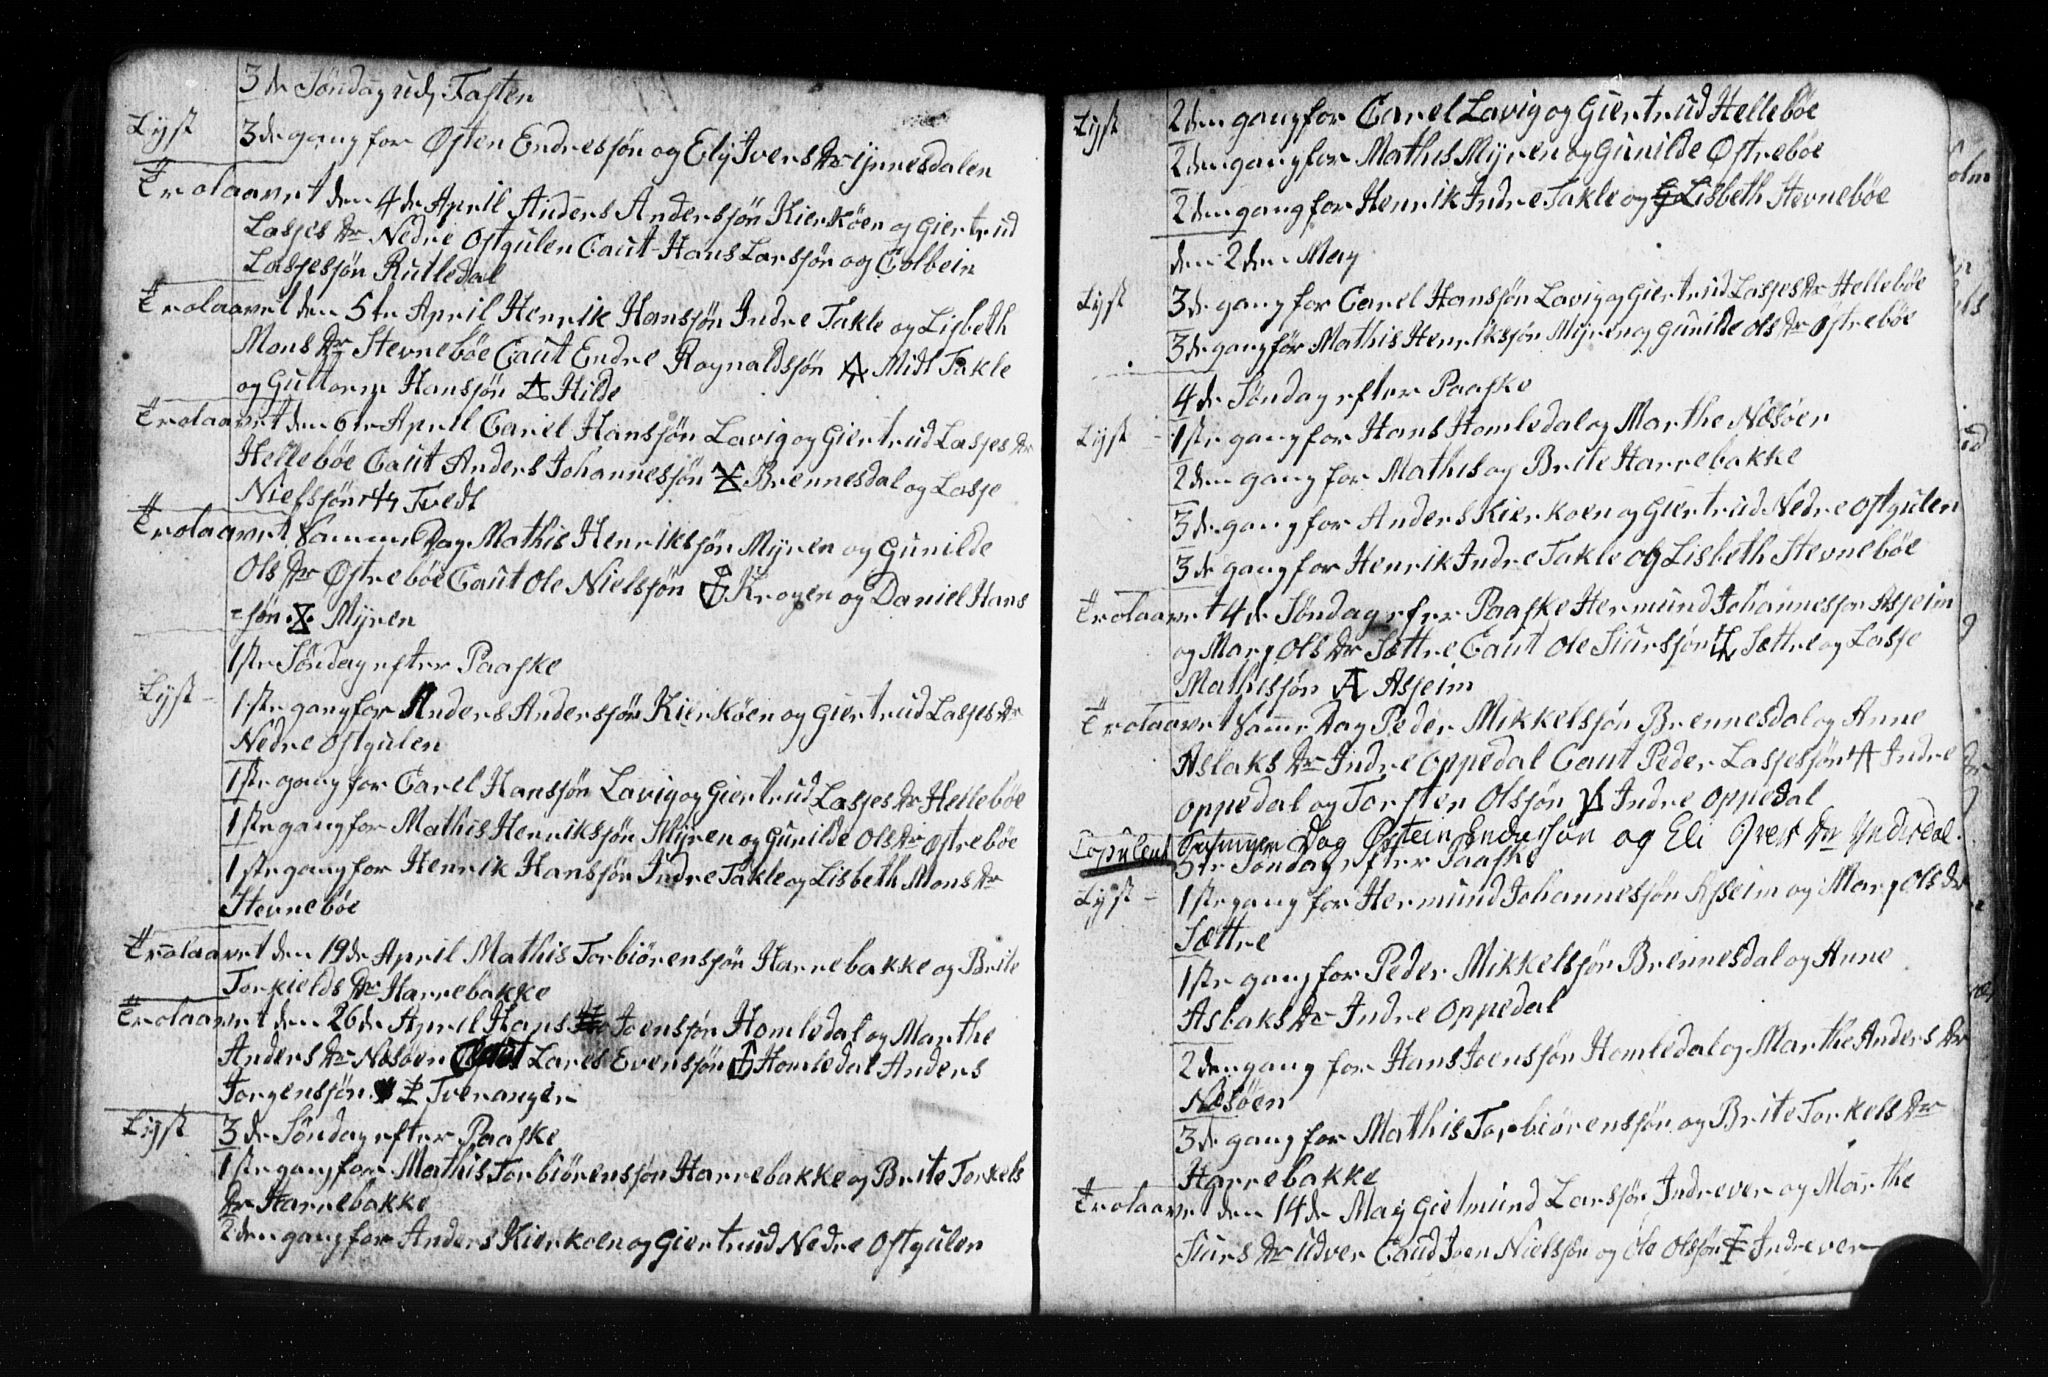 3de Søndag udj Fasten
Lyst 3de gang for Østen Endressøn og Ely Ivers Dr Ynnesdalen
Trolaavet den 4de April Anders Anderssøn Kierkøen og Giertrud
Lasses Dr Nedre Ostgulen Caut Hans Larssøn og Colbein
Lassessøn Rutledal
Trolaavet den 5te April Henrik Hanssøn Indre Takle og Lisbeth
Mons Dr Stevnebøe Caut Endre Roynaldssøn Midt Takle
og Guttorm Hanssøn Hilde
Trolaavet den 6te April Carel Hanssøn Lavig og Giertrud Lasses Dr
Hellebøe Caut Anders Johannessøn Brennesdal og Lasse
Nielssøn Tvedt
Trolaavet Samme Dag Mathis Henrikssøn Myren og Gunilde
Ols Dr Østrebøe Caut Ole Nielssøn Kroyen og Daniel Hans
=søn Myren
1ste Søndag efter Paaske
Lyst - 1ste gang for Anders Anderssøn Kierkøen og Giertrud Lasses Dr
Nedre Ostgulen
1ste gang for Carel Hanssøn Lavig og Giertrud Lasses Dr Hellebøe
1ste gang for Mathis Henrikssøn Myren og Gunilde Ols Dr Østrebøe
1ste gang for Henrik Hanssøn Indre Takle og Lisbeth Mons Dr
Stevnebøe
Trolaavet den 19de April Mathis Torbiörenssøn Harrebakke og Brite
Torkields Dr Harrebakke
Trolaavet den 26de April Hans Joenssøn Homledal og Marthe
Anders Dr Nosøen Caut Lares Evenssøn Homledal Anders
Jorgenssøn Tveranger
Lyst 3de Søndag efter Paaske
1ste gang for Mathis Torbiörenssøn Harrebakke og Brite Torkels
Dr Harrebakke
2den gang for Anders Kierkoen og Giertrud Nedre Ostgulen
Lyst 2den gang for Carel Lavig og Giertrud Hellebøe
2den gang for Mathis Myren og Gunilde Østrebøe
2den gang for Henrik Indre Takle og Lisbeth Stevnebøe
den 2den May
Lyst 3de gang for Carel Hanssøn Lavig og Giertrud Lasses Dr Hellebøe
3de gang for Mathis Henrikssøn Myren og Gunilde Ols Dr Østrebøe
4de Søndag efter Paaske
Lyst - 1ste gang for Hans Homledal og Marthe Nosøen
2den gang for Mathis og Brite Harrebakke
3de gang for Anders Kierkoen og Giertrud Nedre Ostgulen
3de gang for Henrik Indre Takle og Lisbeth Stevnebøe
Trolaavet 4de Søndag efter Paaske Hermund Johannessøn Asseim
og Marj Ols Dr Sættre Caut Ole Siurssøn Sættre og Lasse
Mathissøn Asseim
Trolaavet Samme Dag Peder Mikkelssøn Brennesdal og Anne
Aslaks Dr Indre Oppedal Caut Peder Lassessøn Indre
Oppedal og Torsten Olssøn Indre Oppedal
Copuleret Dag Østein Enderssøn og Eli Ivers Dr Yndesdal.
5te Søndag efter Paaske
Lyst - 1ste gang for Hermund Johannessøn Asseim og Marj Ols Dr
Sættre
1ste gang for Peder Mikkelssøn Brennesdal og Anne
Aslaks Dr Indre Oppedal
2den gang for Hans Joenssøn Homledal og Marthe Anders Dr
Nosøen
3de gang for Mathis Torbiörenssøn og Brite Torkels Dr
Harrebakke
Trolaavet den 14de May Gietmund Larssøn Indrever og Marthe
Siurs Dr Udver Caud Joen Nielssøn og Ole Olssøn Indrever